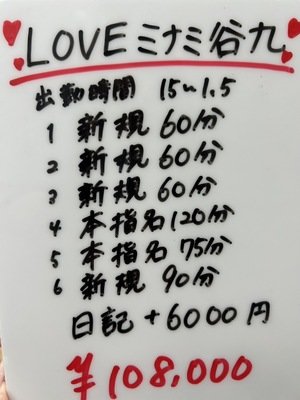 LOVEミナミ谷九
出勤時間 15〜1.5
1 新規 60分
2 新規 60分
3 新規 60分
4 本指名120分
5 本指名 75分
6 新規 90分
日記 + 6000円
¥108,000